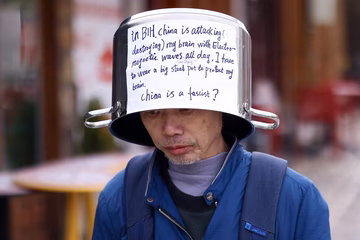 In BIH, china is attacking (
destroying) my brain with Electro-
magnetic waves all day. I have
to wear a big steel pot to protect my
brain.
china is a fascist?